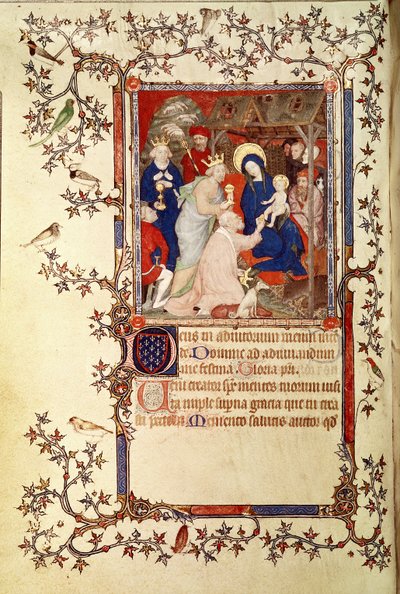 Deus in adiutorium meum inte
de Domine ad adiuuandum
me festina Gloria pri
Veni creator sps mentes tuorum uisi
ta imple supna gracia que tu crea
sti pectora Memento salutis auctor qd